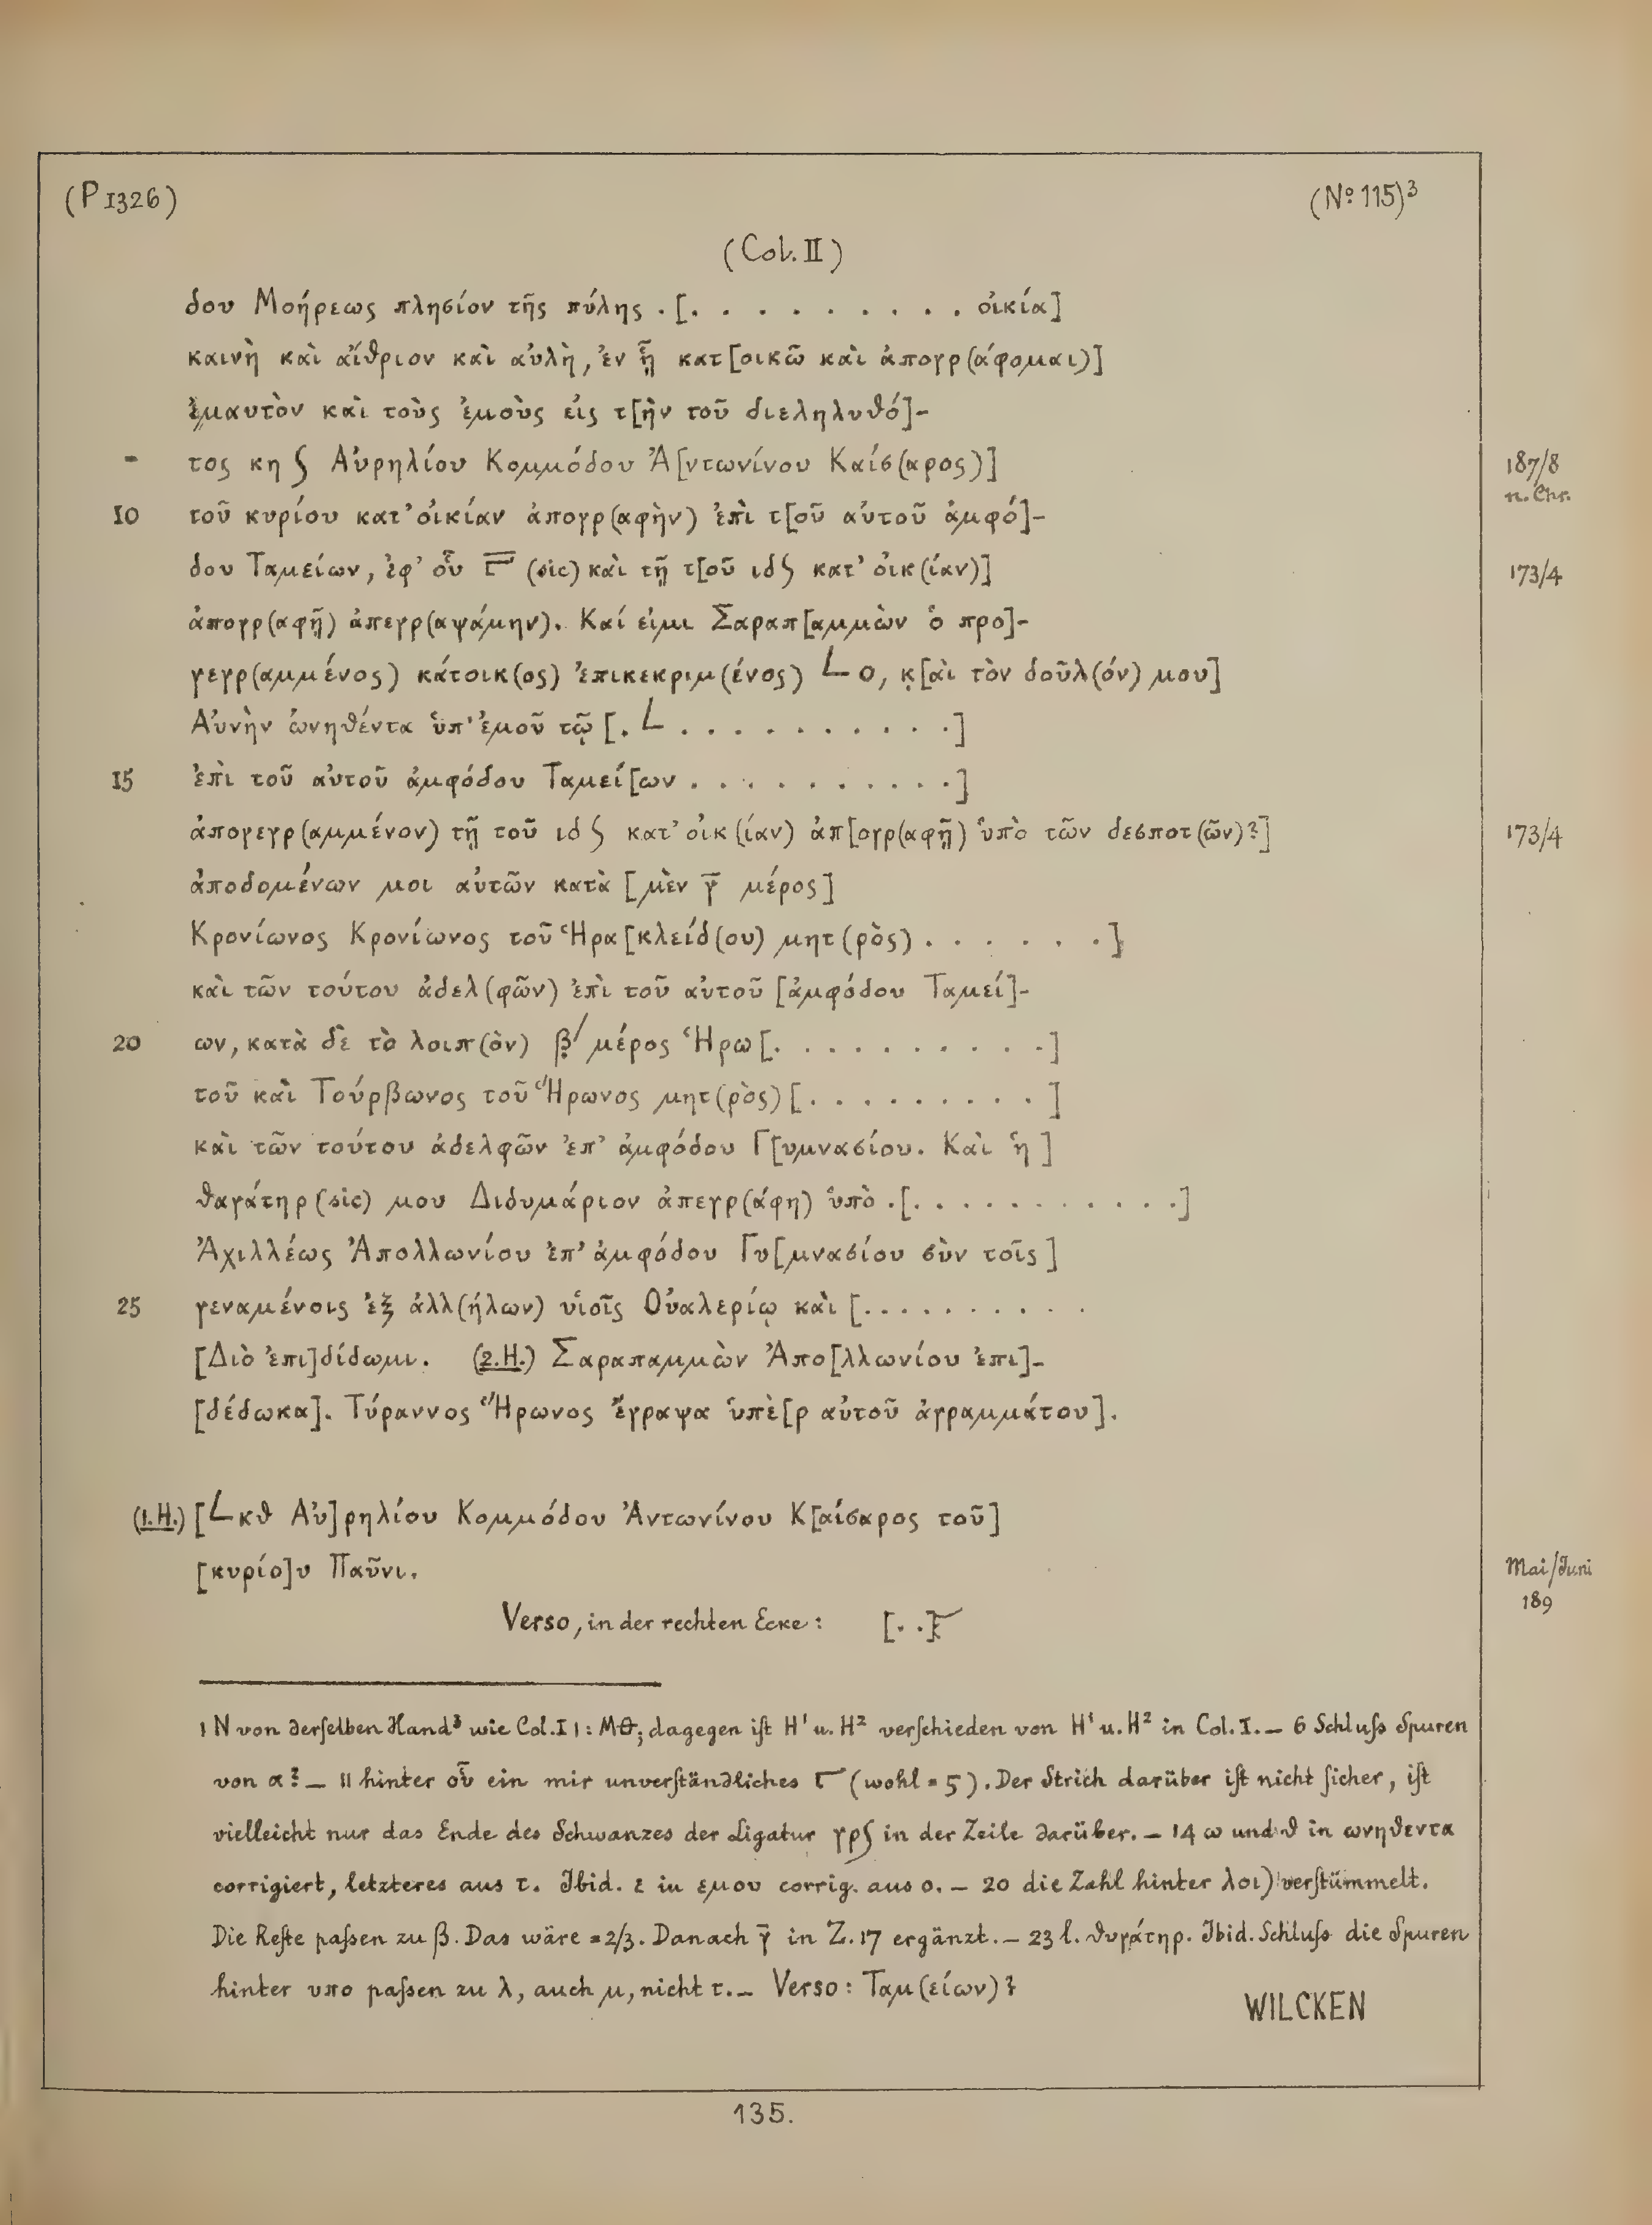 (P 1326) (No 115)³
(Col. II)
δου Μοήρεως πλησίον τῆς πύλης . [. . . . . . . . . . οἰκία]
καινὴ καὶ αἴθριον καὶ αὐλὴ, ἐν ᾗ κατ[οικῶ καὶ ἀπογρ(άφομαι)]
ἐμαυτὸν καὶ τοὺς ἐμοὺς εἰς τ[ὴν τοῦ διεληλυθό]-
- τος κη ʃ Αὐρηλίου Κομμόδου Ἀ[ντωνίνου Καίσ(αρος)] 187/8 n. Chr.
10 τοῦ κυρίου κατ' οἰκίαν ἀπογρ(αφὴν) ἐπὶ τ[οῦ αὐτοῦ ἀμφό]-
δου Ταμείων, ἐφ' οὗ ͞Γ (sic) καὶ τῇ τ[οῦ ιδ ʃ κατ' οἰκ(ίαν)] 173/4
ἀπογρ(αφῇ) ἀπεγρ(αψάμην). Καί εἰμι Σαραπ[αμμὼν ὁ προ]-
γεγρ(αμμένος) κάτοικ(ος) ἐπικεκριμ(ένος) L ο, κ̣[αὶ τὸν δοῦλ(όν) μου]
Αὐνὴν ὠνηθέντα ὑπ' ἐμοῦ τῷ [. L . . . . . . . . . . .]
15 ἐπὶ τοῦ αὐτοῦ ἀμφόδου Ταμεί[ων . . . . . . . . . . .]
ἀπογεγρ(αμμένον) τῇ τοῦ ιδ ʃ κατ' οἰκ(ίαν) ἀπ[ογρ(αφῇ) ὑπὸ τῶν δεσποτ(ῶν)?] 173/4
ἀποδομένων μοι αὐτῶν κατὰ [μὲν γ̄ μέρος]
Κρονίωνος Κρονίωνος τοῦ Ἡρα[κλείδ(ου) μητ(ρὸς) . . . . . . .]
καὶ τῶν τούτου ἀδελ(φῶν) ἐπὶ τοῦ αὐτοῦ [ἀμφόδου Ταμεί]-
20 ων, κατὰ δὲ τὸ λοιπ(ὸν) β̣' μέρος Ἡρω[. . . . . . . . . . .]
τοῦ καὶ Τούρβωνος τοῦ Ἥρωνος μητ(ρὸς) [. . . . . . . . . ]
καὶ τῶν τούτου ἀδελφῶν ἐπ' ἀμφόδου Γ[υμνασίου. Καὶ ἡ ]
θαγάτηρ (sic) μου Διδυμάριον ἀπεγρ(άφη) ὑπὸ . [. . . . . . . . . . . .]
Ἀχιλλέως Ἀπολλωνίου ἐπ' ἀμφόδου Γυ[μνασίου σὺν τοῖς ]
25 γεναμένοις ἐξ ἀλλ(ήλων) υἱοῖς Οὐαλερίῳ καὶ [. . . . . . . . . .
[Διὸ ἐπι]δίδωμι. (2.H.) Σαραπαμμὼν Ἀπο[λλωνίου ἐπι]-
[δέδωκα]. Τύραννος Ἥρωνος ἔγραψα ὑπὲ[ρ αὐτοῦ ἀγραμμάτου].
(1.H.) [L κθ Αὐ]ρηλίου Κομμόδου Ἀντωνίνου Κ[αίσαρος τοῦ]
[κυρίο]υ Παῦνι. Mai/Juni 189
Verso, in der rechten Ecke: [. .]
1 N von derselben Hand³ wie Col. I 1: ΜΘ; dagegen ist H¹ u. H² verschieden von H¹ u. H² in Col. I. — 6 Schluss Spuren
von α? — 11 hinter οὗ ein mir unverständliches Γ (wohl = 5). Der Strich darüber ist nicht sicher, ist
vielleicht nur das Ende des Schwanzes der Ligatur γρʃ in der Zeile darüber. — 14 ω und θ in ωνηθεντα
corrigiert, letzteres aus τ. Ibid. ε in εμου corrig. aus ο. — 20 die Zahl hinter λοι) verstümmelt.
Die Reste passen zu β. Das wäre = 2/3. Danach γ̄ in Z. 17 ergänzt. — 23 l. θυγάτηρ. Ibid. Schluss die Spuren
hinter υπο passen zu λ, auch μ, nicht τ. — Verso: Ταμ(είων)?
WILCKEN
135.